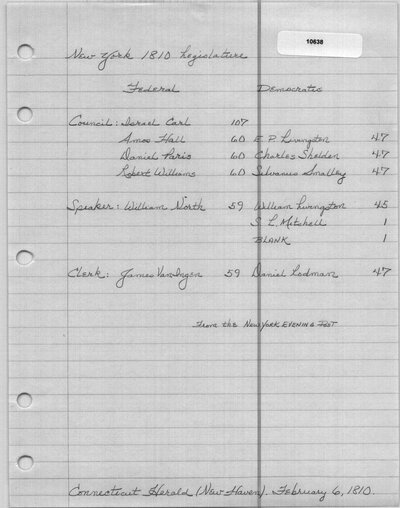 10638
New York 1810 Legislature
Federal Democratic
Council: Israel Carl 107
Amos Hall 60 E. P. Livingston 47
Daniel Paris 60 Charles Shelden 47
Robert Williams 60 Silvanus Smalley 47
Speaker: William North 59 William Livingston 45
S. L. Mitchell 1
BLANK 1
Clerk: James VanIngen 59 Daniel Rodman 47
From the NEW YORK EVENING POST
Connecticut Herald (New Haven). February 6, 1810.